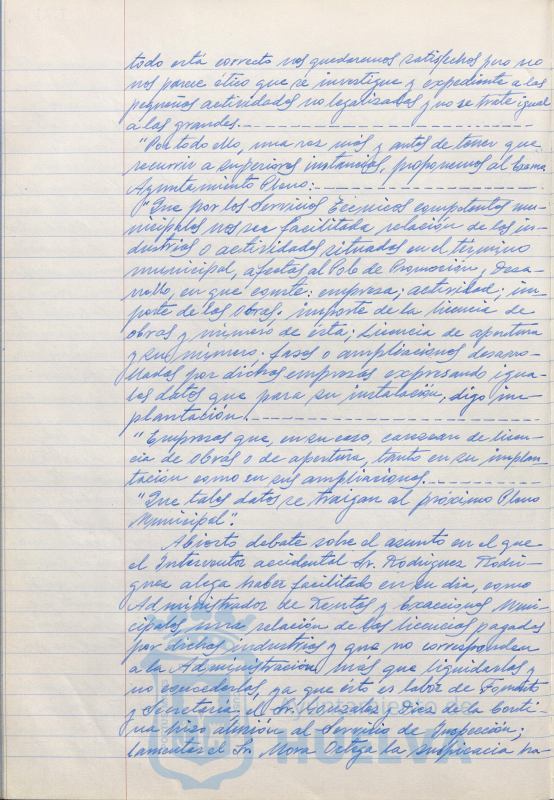 todo está correcto nos quedaremos satisfechos pero no
nos parece ético que se investigue y expediente a las
pequeñas actividades no legalizadas y no se trate igual
a las grandes.
"Por todo ello, una vez más y antes de tener que
recurrir a superiores instancias, proponemos al Excmo.
Ayuntamiento Pleno:
"Que por los Servicios Técnicos competentes mu-
nicipales nos sea facilitada relación de las in-
dustrias o actividades situadas en el término
municipal, afectas al Polo de Promoción y Desa-
rrollo, en que conste: empresa; actividad; im-
porte de las obras. importe de la licencia de
obras y número de ésta; Licencia de apertura
y su número. fases o ampliaciones desarro-
lladas por dichas empresas expresando igua-
les datos que para su instalación, digo im-
plantación.
"Empresas que, en su caso, carezcan de licen-
cia de obras o de apertura, tanto en su implan-
tación como en sus ampliaciones.
"Que tales datos se traigan al próximo Pleno
Municipal".
Abierto debate sobre el asunto en el que
el Interventor accidental Sr. Rodríguez Rodrí-
guez alega haber facilitado en su día, como
Administrador de Rentas y Exacciones Muni-
cipales una relación de las licencias pagadas
por dichas industrias y que no corresponden
a la Administración más que liquidarlas y
no concederlas, ya que ésto es labor de Fomento
y Secretaría el Sr. González y Díez de la Corti-
na hizo alusión al Servicio de Inspección;
lamentar el Sr. Mora Ortega la suspicacia ha-
HUELVA